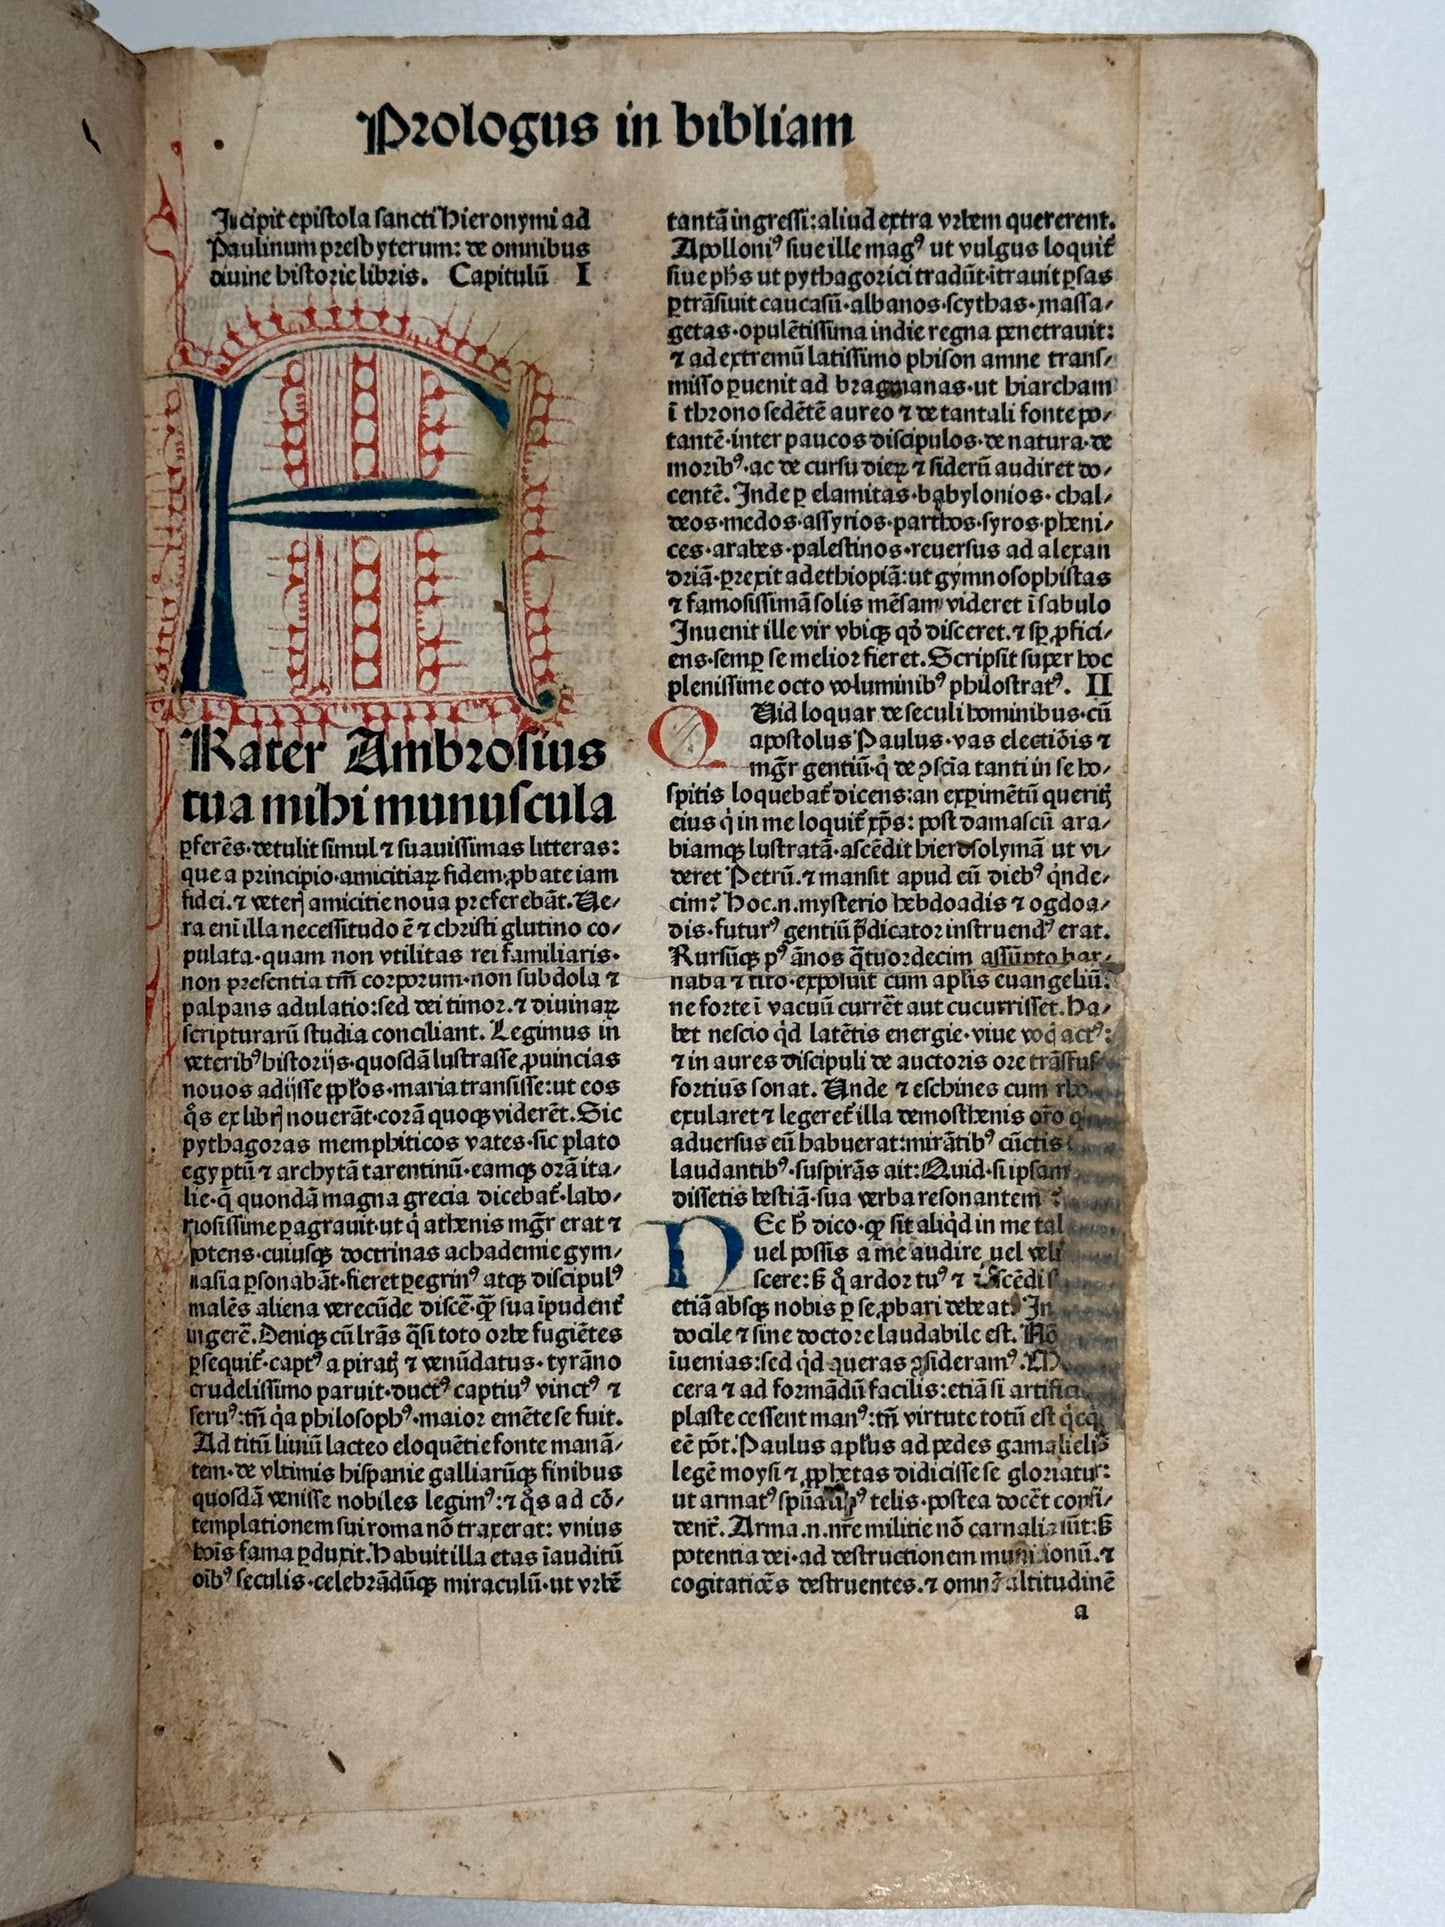 Prologus in bibliam
Incipit epistola sancti Hieronymi ad
Paulinum presbyterum: de omnibus
diuine historie libris. Capitulū I
FRater Ambrosius
tua mihi munuscula
ꝑferēs·detulit simul ⁊ suauissimas litteras:
que a principio·amicitiaꝝ fidem·ꝓbate iam
fidei.⁊ veterꝭ amicitie noua preferebāt.Ue⸗
ra eni illa necessitudo ē ⁊ christi glutino co⸗
pulata·quam non vtilitas rei familiaris·
non presentia tm̄ corporum·non subdola ⁊
palpans adulatio:sed dei timor.⁊ diuinaꝝ
scripturarū studia conciliant. Legimus in
veteribꝰ historijs·quosdā lustrasse ꝓuincias
nouos adijsse ppłos·maria transisse:ut eos
q̄s ex librꝭ nouerāt·corā quoqꝫ viderēt.Sic
pythagoras memphiticos vates·sic plato
egyptū ⁊ archytā tarentinū·eamqꝫ orā ita⸗
lie·q̄ quondā magna grecia dicebat̄·labo⸗
riosissime ꝑagrauit·ut q̇ athenis mgr̄ erat ⁊
potens·cuiusqꝫ doctrinas achademie gym⸗
nasia ꝑsonabāt·fieret ꝑegrinꝰ atqꝫ discipulꝰ
malēs aliena verecūde discē·q̄ꝫ sua īpudent̄
ingerē.Deniqꝫ cū lr̄as q̄si toto orbe fugiētes
ꝑsequit̄·captꝰ a piratꝭ ⁊ venūdatus·tyrāno
crudelissimo paruit·ductꝰ captiuꝰ vinctꝰ ⁊
seruꝰ:tn̄ q̇a philosophꝰ·maior emēte se fuit.
Ad titū liuiū lacteo eloquētie fonte manā⸗
tem·de vltimis hispanie galliarūqꝫ finibus
quosdā venisse nobiles legimꝰ:⁊ q̄s ad cō⸗
templationem sui roma nō traxerat: vnius
hoīs fama ꝑduxit.Habuit illa etas īauditū
oībꝰ seculis·celebrādūqꝫ miraculū·ut vrbē
tantā ingressi:aliud extra vrbem quererent.
Apolloniꝰ siue ille magꝰ ut vulgus loquit̄
siue ph̄s ut pythagorici tradūt·ītrauit ꝑsas
ꝑtrāsiuit caucasū·albanos·scythas·massa⸗
getas·opulētissima indie regna penetrauit:
⁊ ad extremū latissimo phison amne trans⸗
misso ꝑuenit ad bragmanas·ut hiarcham
ī throno sedētē aureo ⁊ de tantali fonte po⸗
tantē·inter paucos discipulos·de natura·de
moribꝰ·ac de cursu dieꝝ ⁊ siderū audiret do⸗
centē.Inde ꝑ elamitas·babylonios·chal⸗
deos·medos·assyrios·parthos·syros·pheni⸗
ces·arabes·palestinos·reuersus ad alexan
driā·ꝑrexit ad ethiopiā:ut gymnosophistas
⁊ famosissimā solis mēsam videret ī sabulo
Inuenit ille vir vbiqꝫ qō disceret.⁊ sꝑ ꝓfici⸗
ens·semꝑ se melior fieret.Scripsit super hoc
plenissime octo voluminibꝰ philostratꝰ. II
QUid loquar de seculi hominibus·cū
apostolus Paulus·vas electiōis ⁊
mgr̄ gentiū·q̇ de ꝯscīa tanti in se ho⸗
spitis loquebat̄ dicens:an experimētū queritꝭ
eius q̇ in me loquit̄ xp̄s: post damascū ara⸗
biamqꝫ lustratā·ascēdit hierosolymā ut vi⸗
deret Petrū.⁊ mansit apud eū diebꝰ q̇nde⸗
cim: Hoc.n.mysterio hebdoadis ⁊ ogdoa⸗
dis·futurꝰ gentiū p̄dicator instruendꝰ erat.
Rursūqꝫ pꝰ ānos q̄tuordecim assūpto bar⸗
naba ⁊ tito·exposuit cum apłis euangeliū:
ne forte ī vacuū currēt aut cucurrisset.Ha⸗
bet nescio q̇d latētis energie·viue vocꝭ actꝰ:
⁊ in aures discipuli de auctoris ore trāsfus
fortius sonat. Unde ⁊ eschines cum rho
exularet ⁊ legeret̄ illa demosthenis orō q
aduersus eū habuerat:mirātibꝰ cūctis
laudantibꝰ·suspirās ait:Quid·si ipsam
dissetis bestiā·sua verba resonantem
NEc h̄ dico·ꝙ sit aliq̇d in me tal
uel possis a me audire uel veli
scere:s̄ q̇ ardor tuꝰ ⁊ discēdi s
etiā absqꝫ nobis ꝑ se ꝓbari debeat. In
docile ⁊ sine doctore laudabile est. Nō
īuenias:sed q̇d queras ꝯsideramꝰ.
cera ⁊ ad formādū facilis:etiā si artifici
plaste cessent manꝰ:tn̄ virtute totū est q̇cq̇
eē pōt.Paulus apłus ad pedes gamalielis
legē moysi ⁊ ꝓphetas didicisse se gloriatur:
ut armatꝰ telis·postea docēt confi⸗
dent̄. Arma.n.nr̄e militie nō carnalia sūt:s̄
potentia dei·ad destructionem munitionū.⁊
cogitatiōes destruentes.⁊ omnē altitudinē
a